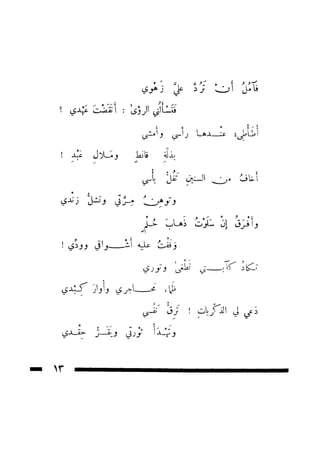 فَآمُلُ أَنْ تَرُدَّ عليَّ زَهْوي
فَتَسْأَلُني الرؤىٰ : أَنَقَضْتَ عَهْدي ؟
أُطَأْطِىءُ عنْدها رأسي وأمشي
بذلّةِ قانطٍ ومَلالِ عَبْدِ !
أخافُ من السنينِ تَفُلُّ بأْسي
وتوهِنُ مِرَّتي وتشلُّ زنْدي
وأَفْرَقُ إِنْ سَلَوْتُ ذَهابَ حُلْمٍ
وَقَفْتُ عليه أشْواقي وودُي !
تكادُ كآبتي تَطْغىٰ وتوري
ظِماءَ محاجري وأُوارَ كِبْدي
دَعي لي الذكْرياتِ ! تَرِقُّ نفْسي
وتَهْدأُ ثَوْرتي ويَقَرُّ حِقْدي
١٣